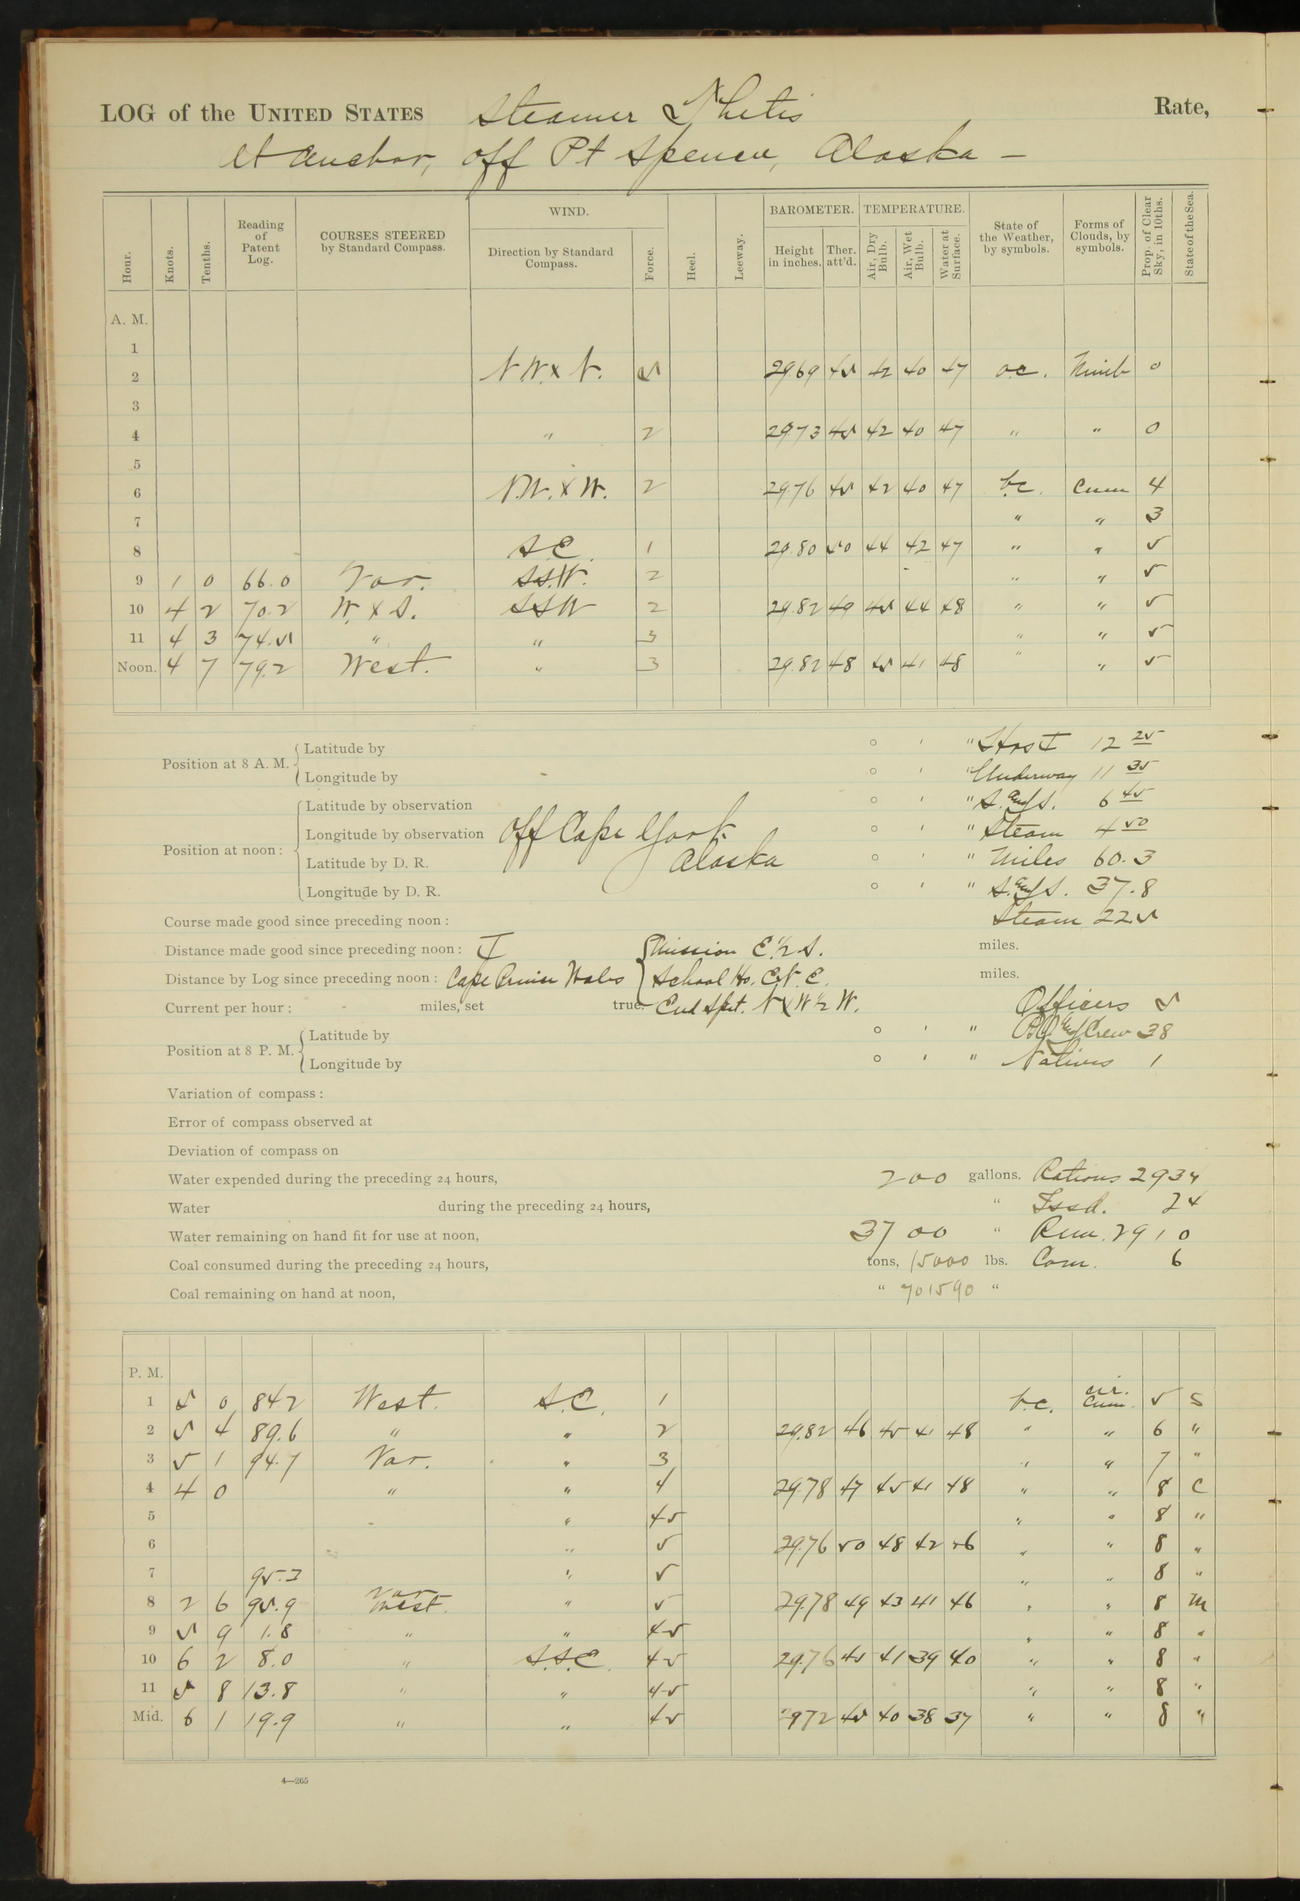 LOG of the UNITED STATES Steamer Thetis Rate,
At anchor, off Pt Spencer, Alaska —
Hour. Knots. Tenths. Reading of Patent Log. COURSES STEERED by Standard Compass. WIND. Direction by Standard Compass. Force. Heel. Leeway. BAROMETER. Height in inches. Ther. att'd. TEMPERATURE. Air, Dry Bulb. Air, Wet Bulb. Water at Surface. State of the Weather, by symbols. Forms of Clouds, by symbols. Prop. of Clear Sky, in 10ths. State of the Sea.
A. M.
1
2 N.W. x N. 5 29.69 45 42 40 47 o.c. Nimb 0
3
4 " 2 29.73 45 42 40 47 " " 0
5
6 N.W. x W. 2 29.76 45 42 40 47 b.c. Cum 4
7 " " 3
8 S.E. 1 29.80 50 44 42 47 " " 5
9 1 0 66.0 Var. S.S.W. 2 " " 5
10 4 2 70.2 W. x S. SSW 2 29.82 49 45 44 48 " " 5
11 4 3 74.5 " " 3 " " 5
Noon. 4 7 79.2 West. " 3 29.82 48 45 41 48 " " 5
Position at 8 A. M. Latitude by ° ' "
Hrs 12 25
Longitude by ° ' " Underway 11 35
Position at noon: Latitude by observation ° ' " S. and S. 6 45
Longitude by observation Off Cape York ° ' " Steam 4 50
Latitude by D. R. Alaska ° ' " Miles 60.3
Longitude by D. R. ° ' " S. and S. 37.8
Course made good since preceding noon: Steam 22.5
Distance made good since preceding noon: Mission E. ½ S. miles.
Distance by Log since preceding noon: Cape Prince Wales School Ho. E.N.E. miles.
Current per hour; miles, set true. End Spit. N x W ½ W. Officers 5
Position at 8 P. M. Latitude by ° ' " P.O. and Crew 38
Longitude by ° ' " Natives 1
Variation of compass:
Error of compass observed at
Deviation of compass on
Water expended during the preceding 24 hours, 200 gallons. Rations 2934
Water during the preceding 24 hours, " Issd. 24
Water remaining on hand fit for use at noon, 3700 " Rem. 2910
Coal consumed during the preceding 24 hours, tons, 15000 lbs. Com. 6
Coal remaining on hand at noon, " 701590 "
P. M.
1 5 0 84.2 West. S.E. 1 b.c. cir. cum. 5 S
2 5 4 89.6 " " 2 29.82 46 45 41 48 " " 6 "
3 5 1 94.7 Var. " 3 " " 7 "
4 4 0 " " 4 29.78 47 45 41 48 " " 8 C
5 " 4-5 " " 8 "
6 " 5 29.76 50 48 42 46 " " 8 "
7 95.3 " 5 " " 8 "
8 2 6 95.9 Var West. " 5 29.78 49 43 41 46 " " 8 M
9 5 9 1.8 " " 4-5 " " 8 "
10 6 2 8.0 " S.S.E. 4-5 29.76 45 41 39 40 " " 8 "
11 5 8 13.8 " " 4-5 " " 8 "
Mid. 6 1 19.9 " " 4-5 2972 45 40 38 37 " " 8 "
4—265